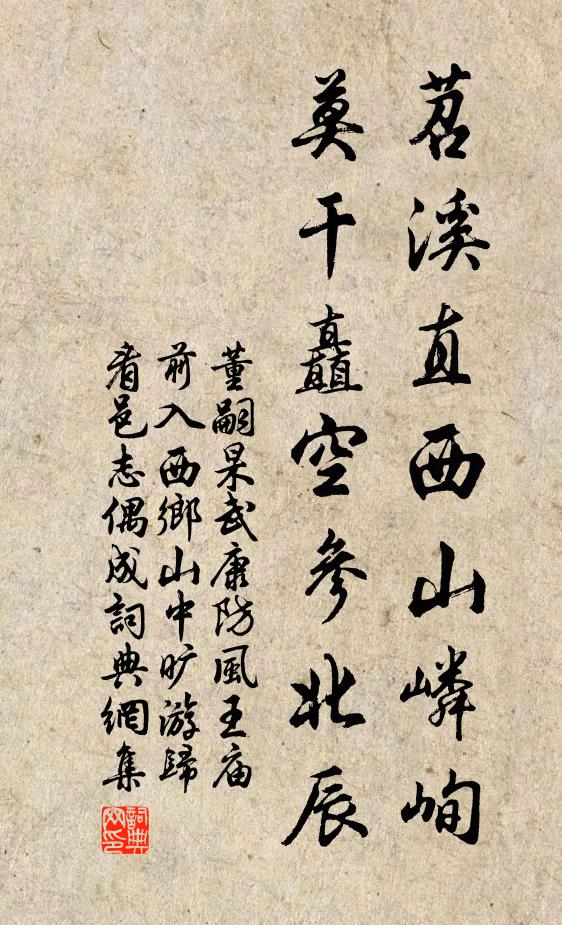 苕溪直西山嶙峋
莫干矗空參北辰
董嗣杲武康防風王庙
前入西鄉山中旷游歸
看邑志偶成詞典網集
詞典网印